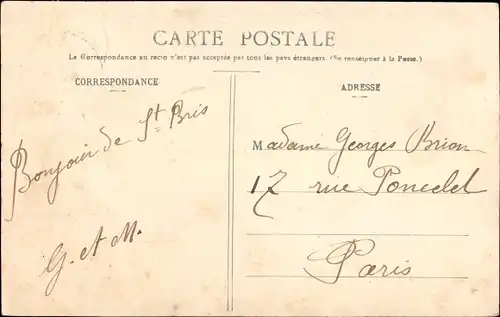 CARTE POSTALE
La Correspondance au recto n'est pas acceptée par tous les pays étrangers. (Se renseigner à la Poste.)
CORRESPONDANCE
Bonjour de St Bris
G. et M.
ADRESSE
Madame Georges Brion
17 rue Poncelet
Paris